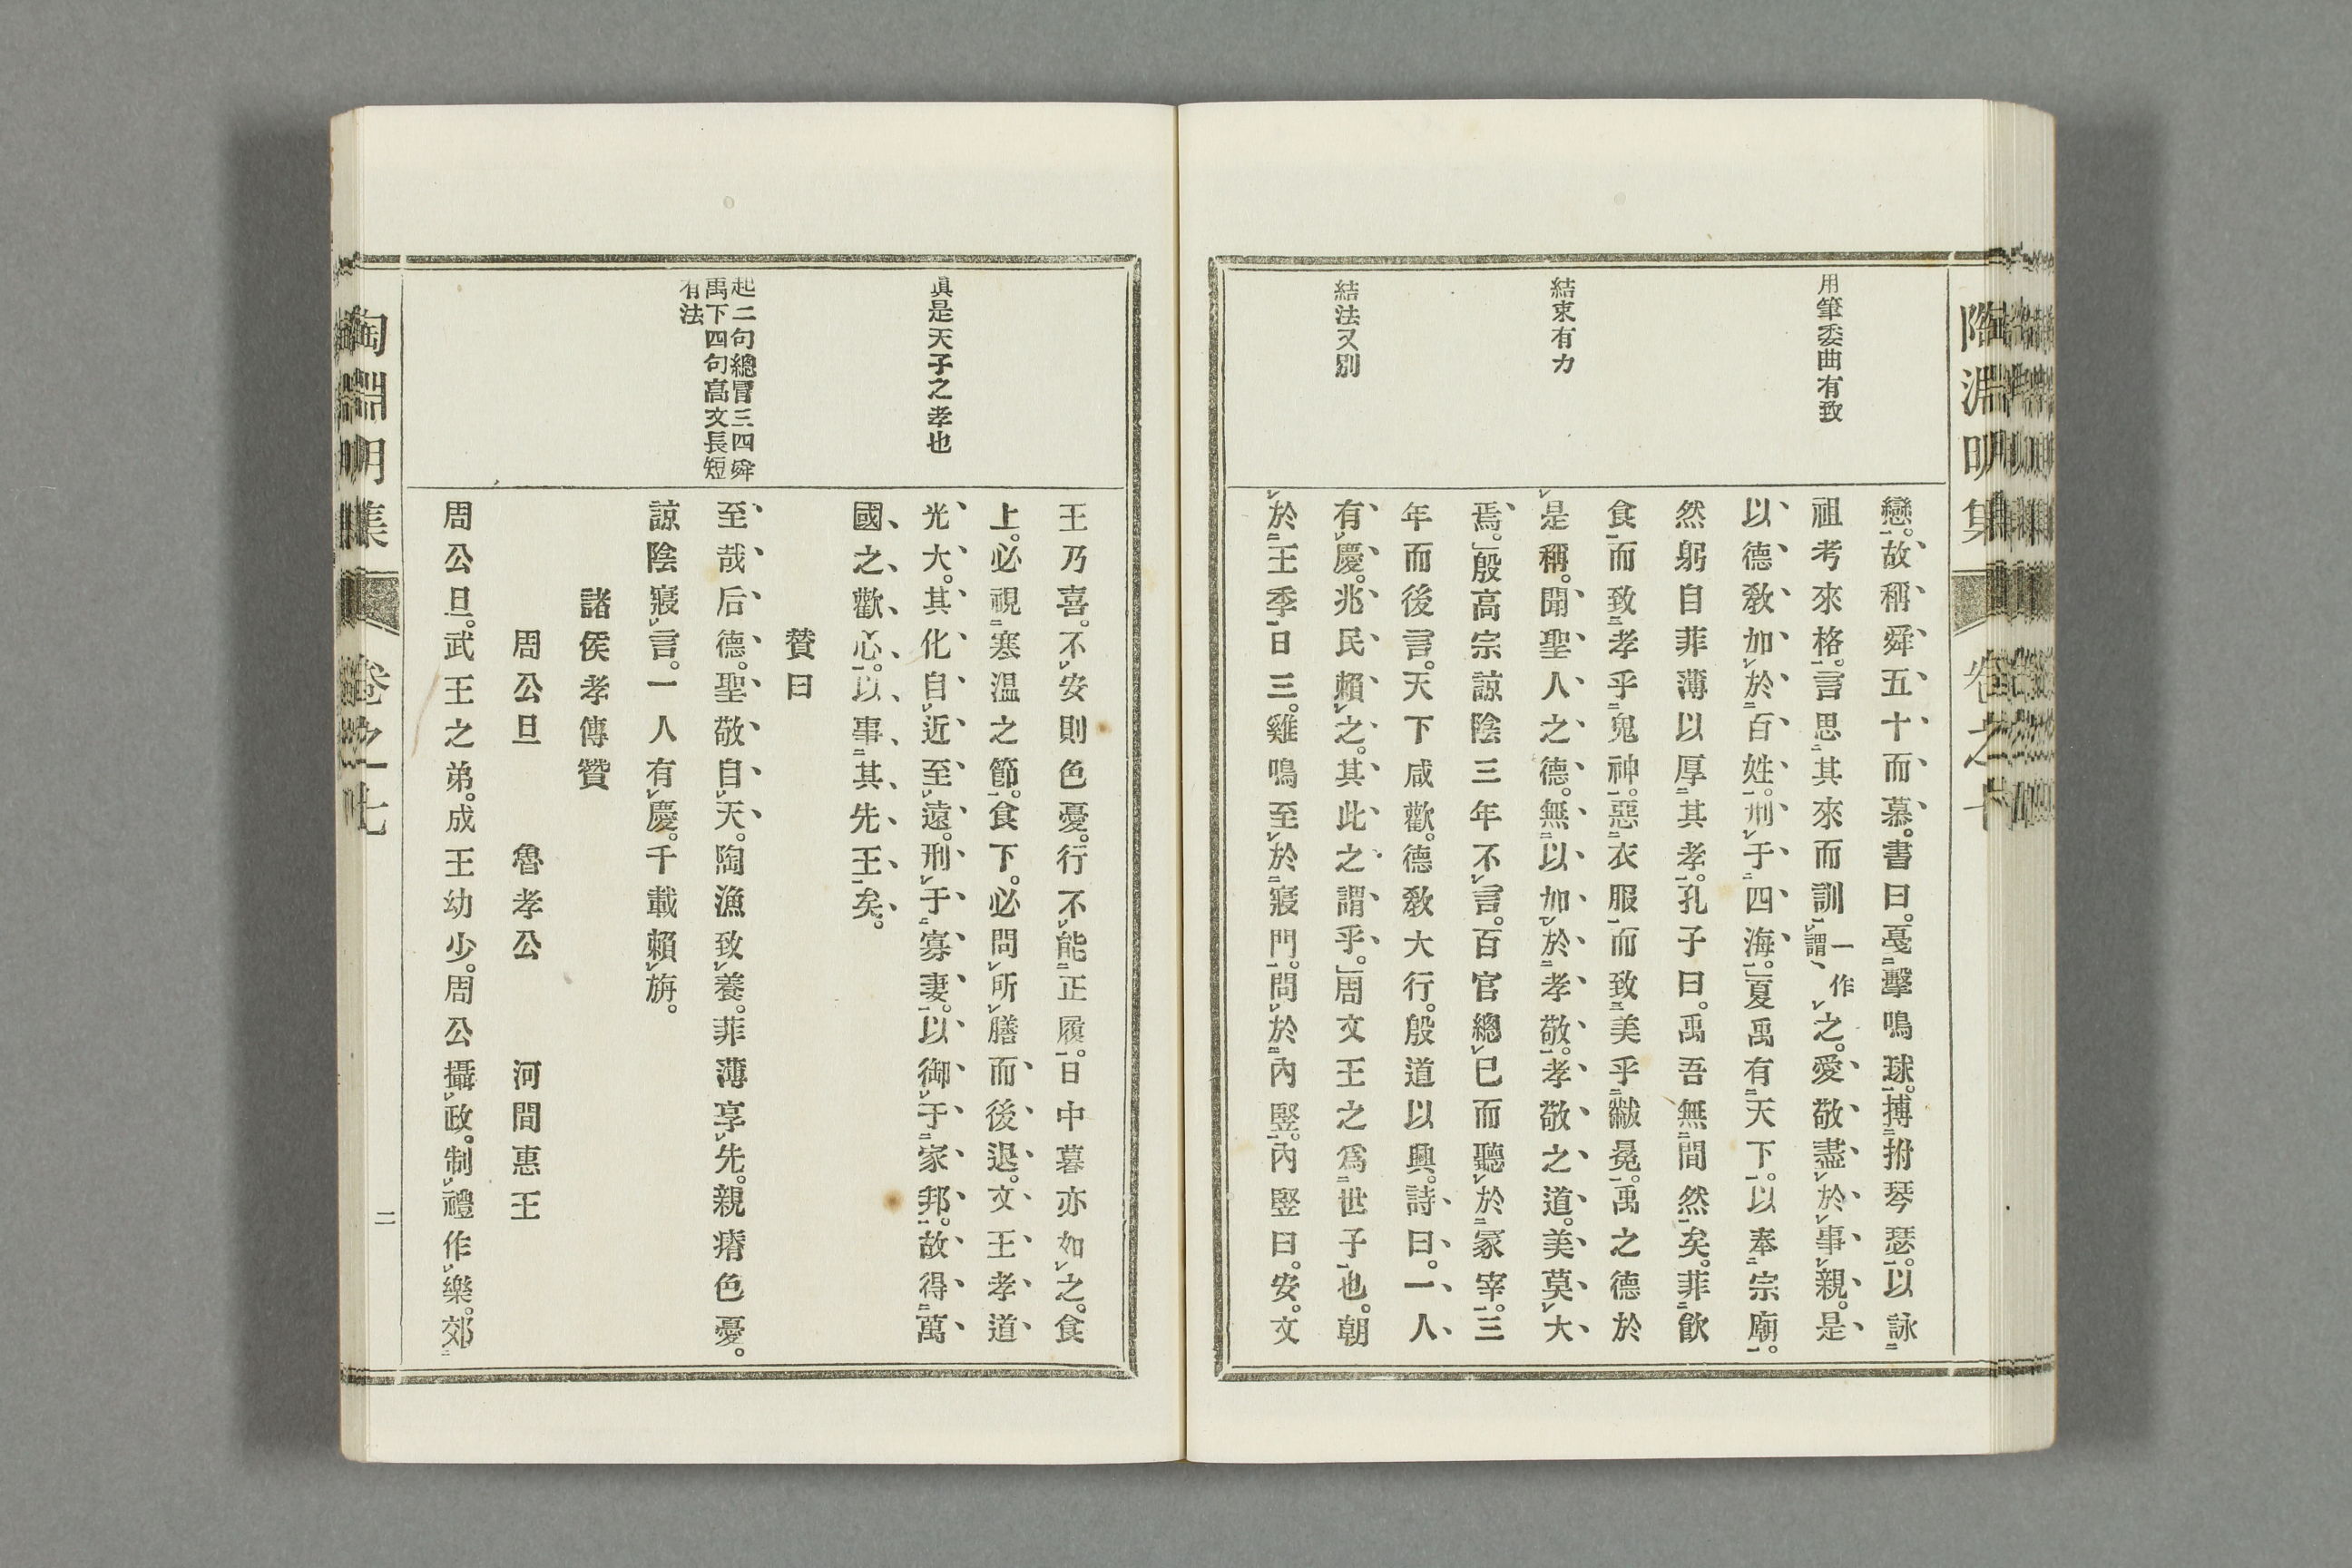 陶淵明集 卷之七
用筆委曲有致
結束有力
結法又別
戀。故稱舜五十而慕。書曰。戞擊鳴球。搏拊琴瑟。以詠
祖考來格。言思其來而訓一作謂之。愛敬盡於事親。是
以德敎加於百姓。刑于四海。」夏禹有天下。以奉宗廟。
然躬自菲薄以厚其孝。孔子曰。禹吾無間然矣。菲飮
食而致孝乎鬼神。惡衣服而致美乎黻冕。禹之德於
是稱。聞聖人之德。無以加於孝敬。孝敬之道。美莫大
焉。」殷高宗諒陰三年不言。百官總已而聽於冢宰。三
年而後言。天下咸歡。德敎大行。殷道以興。詩曰。一人
有慶。兆民賴之。其此之謂乎。」周文王之爲世子也。朝
於王季日三。雞鳴至於寢門。問於內豎。內豎曰。安。文
眞是天子之孝也
起二句總冒三四舜
禹下四句高文長短
有法
王乃喜。不安則色憂。行不能正履。日中暮亦如之。食
上。必視寒溫之節。食下。必問所膳而後退。文王孝道
光大。其化自近至遠。刑于寡妻。以御于家邦。故得萬
國之歡心。以事其先王矣。
贊曰
至哉后德。聖敬自天。陶漁致養。菲薄享先。親瘠色憂。
諒陰寢言。一人有慶。千載賴旃。
諸侯孝傳贊
周公旦 魯孝公 河間惠王
周公旦。武王之弟。成王幼少。周公攝政。制禮作樂。郊
陶淵明集 卷之七 二